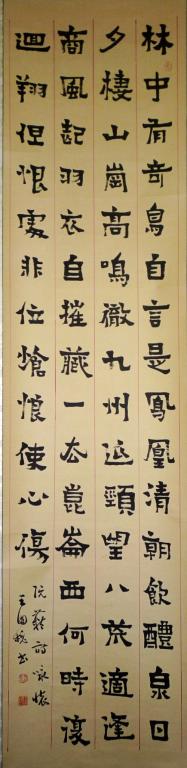 林中有奇鳥自言是鳳凰清朝飲醴泉日
夕棲山崗高鳴徹九州延頸望八荒適逢
商風起羽衣自摧藏一去崑崙西何時復
迴翔但恨處非位愴悢使心傷
阮藉詩詠懷
王國書